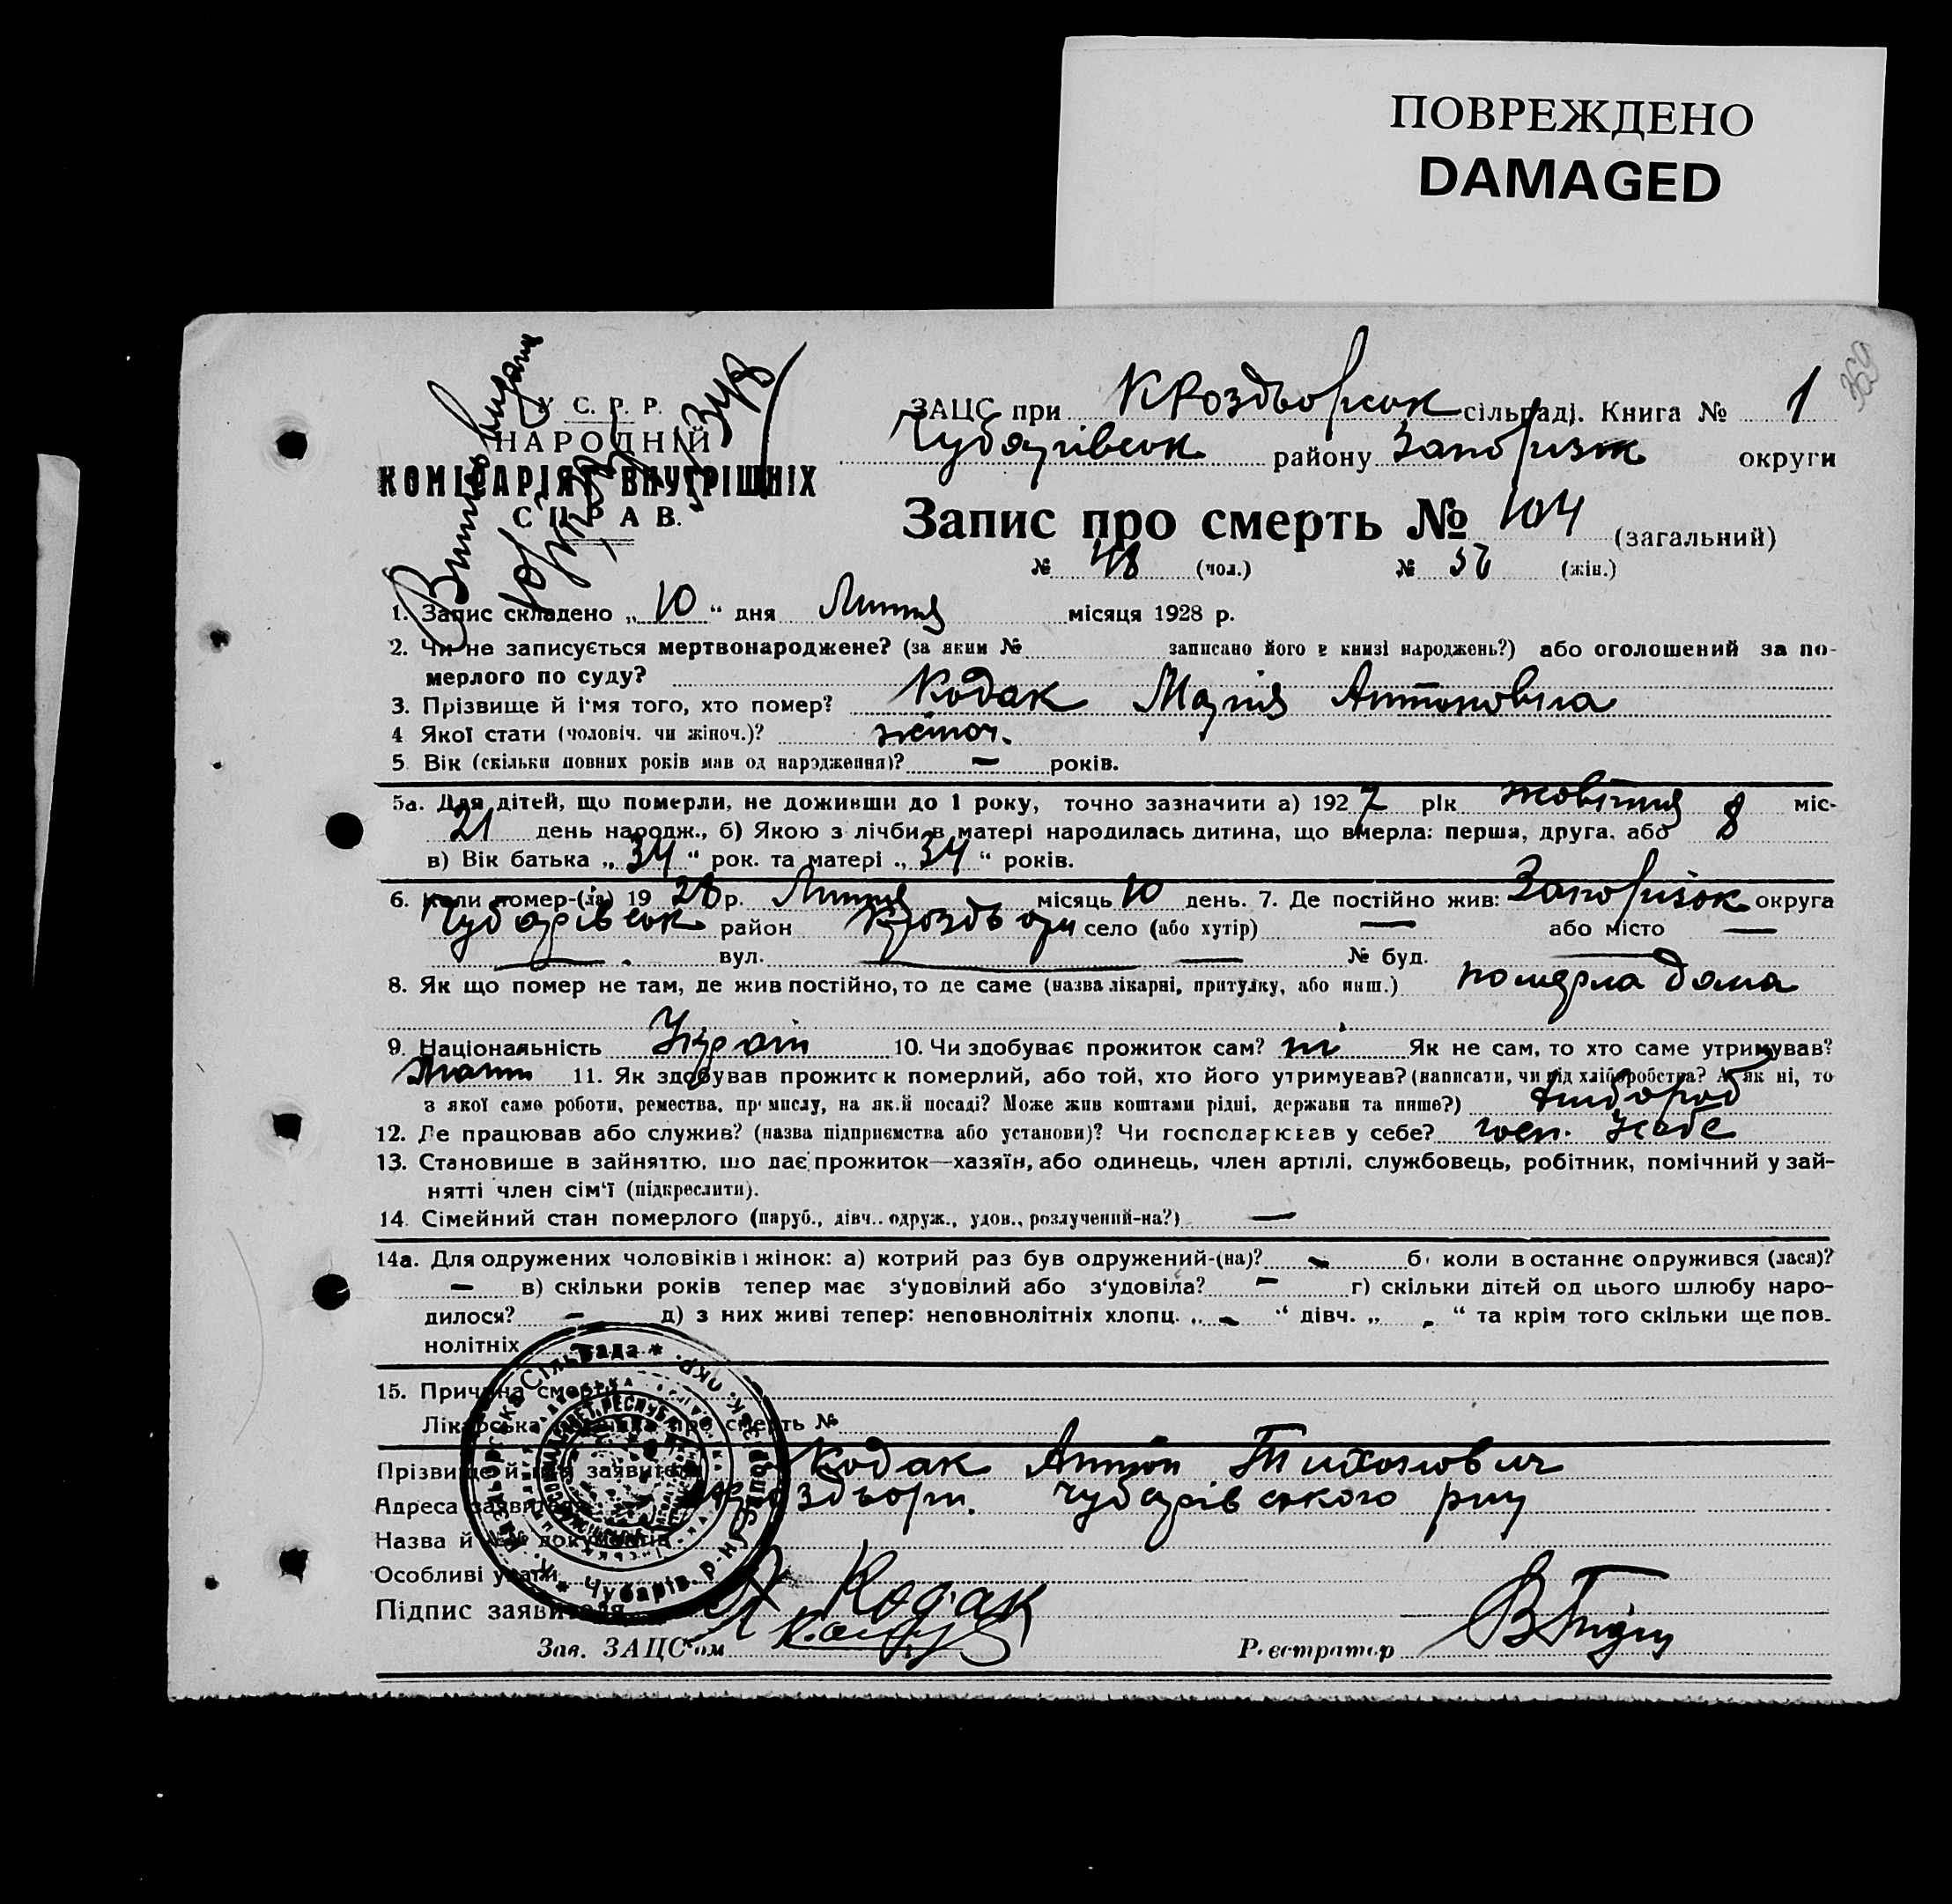 ПОВРЕЖДЕНО
DAMAGED
359
У. С. Р. Р.
НАРОДНІЙ
КОМІСАРІЯТ ВНУТРІШНІХ
СПРАВ.
ЗАЦС при КРоздорськ сільраді. Книга № 1
Чубарівськ району Запоріжж округи
Запис про смерть № 104 (загальний)
№ 48 (чол.) № 56 (жін.)
1. Запис складено „ 10 “ дня Липня місяця 1928 р.
2. Чи не записується мертвонароджене? (за яким № записано його в книзі народжень?) або оголошений за по-
мерлого по суду?
3. Прізвище й ім'я того, хто помер? Кодак Марія Антоновна
4 Якої стати (чоловіч. чи жіноч.)? жіноч.
5. Вік (скільки повних років мав од народження)? — років.
5а. Для дітей, що померли, не доживши до 1 року, точно зазначити а) 1927 рік жовтня міс-
21 день народж., б) Якою з лічби в матері народилась дитина, що вмерла: перша, друга, або 8
в) Вік батька „ 34 “ рок. та матері „ 34 “ років.
6. Коли помер-(ла) 19 28 р. Липня місяць 10 день. 7. Де постійно жив: Запорізьк округа
Чубарівськ район Кроздьори село (або хутір) — або місто —
— вул. — № буд. —
8. Як що помер не там, де жив постійно, то де саме (назва лікарні, притулку, або инш.) померла дома
9. Національність Україн 10. Чи здобуває прожиток сам? ні Як не сам, то хто саме утримував?
Мати 11. Як здобував прожиток померлий, або той, хто його утримував? (написати, чи від хліборобства? А як ні, то
з якої саме роботи, ремества, промислу, на якій посаді? Може жив коштами рідні, держави та инше?) хлібороб
12. Де працював або служив? (назва підприємства або установи)? Чи господарював у себе? госп. у себе
13. Становище в зайняттю, що дає прожиток—хазяїн, або одинець, член артілі, службовець, робітник, помічний у зай-
нятті член сім'ї (підкреслити).
14. Сімейний стан померлого (паруб., дівч.. одруж., удов., розлучений-на?) —
14а. Для одружених чоловіків і жінок: а) котрий раз був одружений-(на)? — б) коли востаннє одружився (лася)?
— в) скільки років тепер має з'удовілий або з'удовіла? — г) скільки дітей од цього шлюбу наро-
дилося? — д) з них живі тепер: неповнолітніх хлопц. „ - “ дівч. „ - “ та крім того скільки ще пов-
нолітніх
15. Причина смерти
Лікарська про смерть №
Прізвище й ім'я заявителя Кодак Антон Тихонович
Адреса заявителя Кроздьори. Чубарівського р-ну
Назва й №№ документів
Особливі уваги
Підпис заявителя А Кодак
Зав. ЗАЦС'ом Реєстратор
Сільрада * Чубарів. р-ну Запоріз. окр.